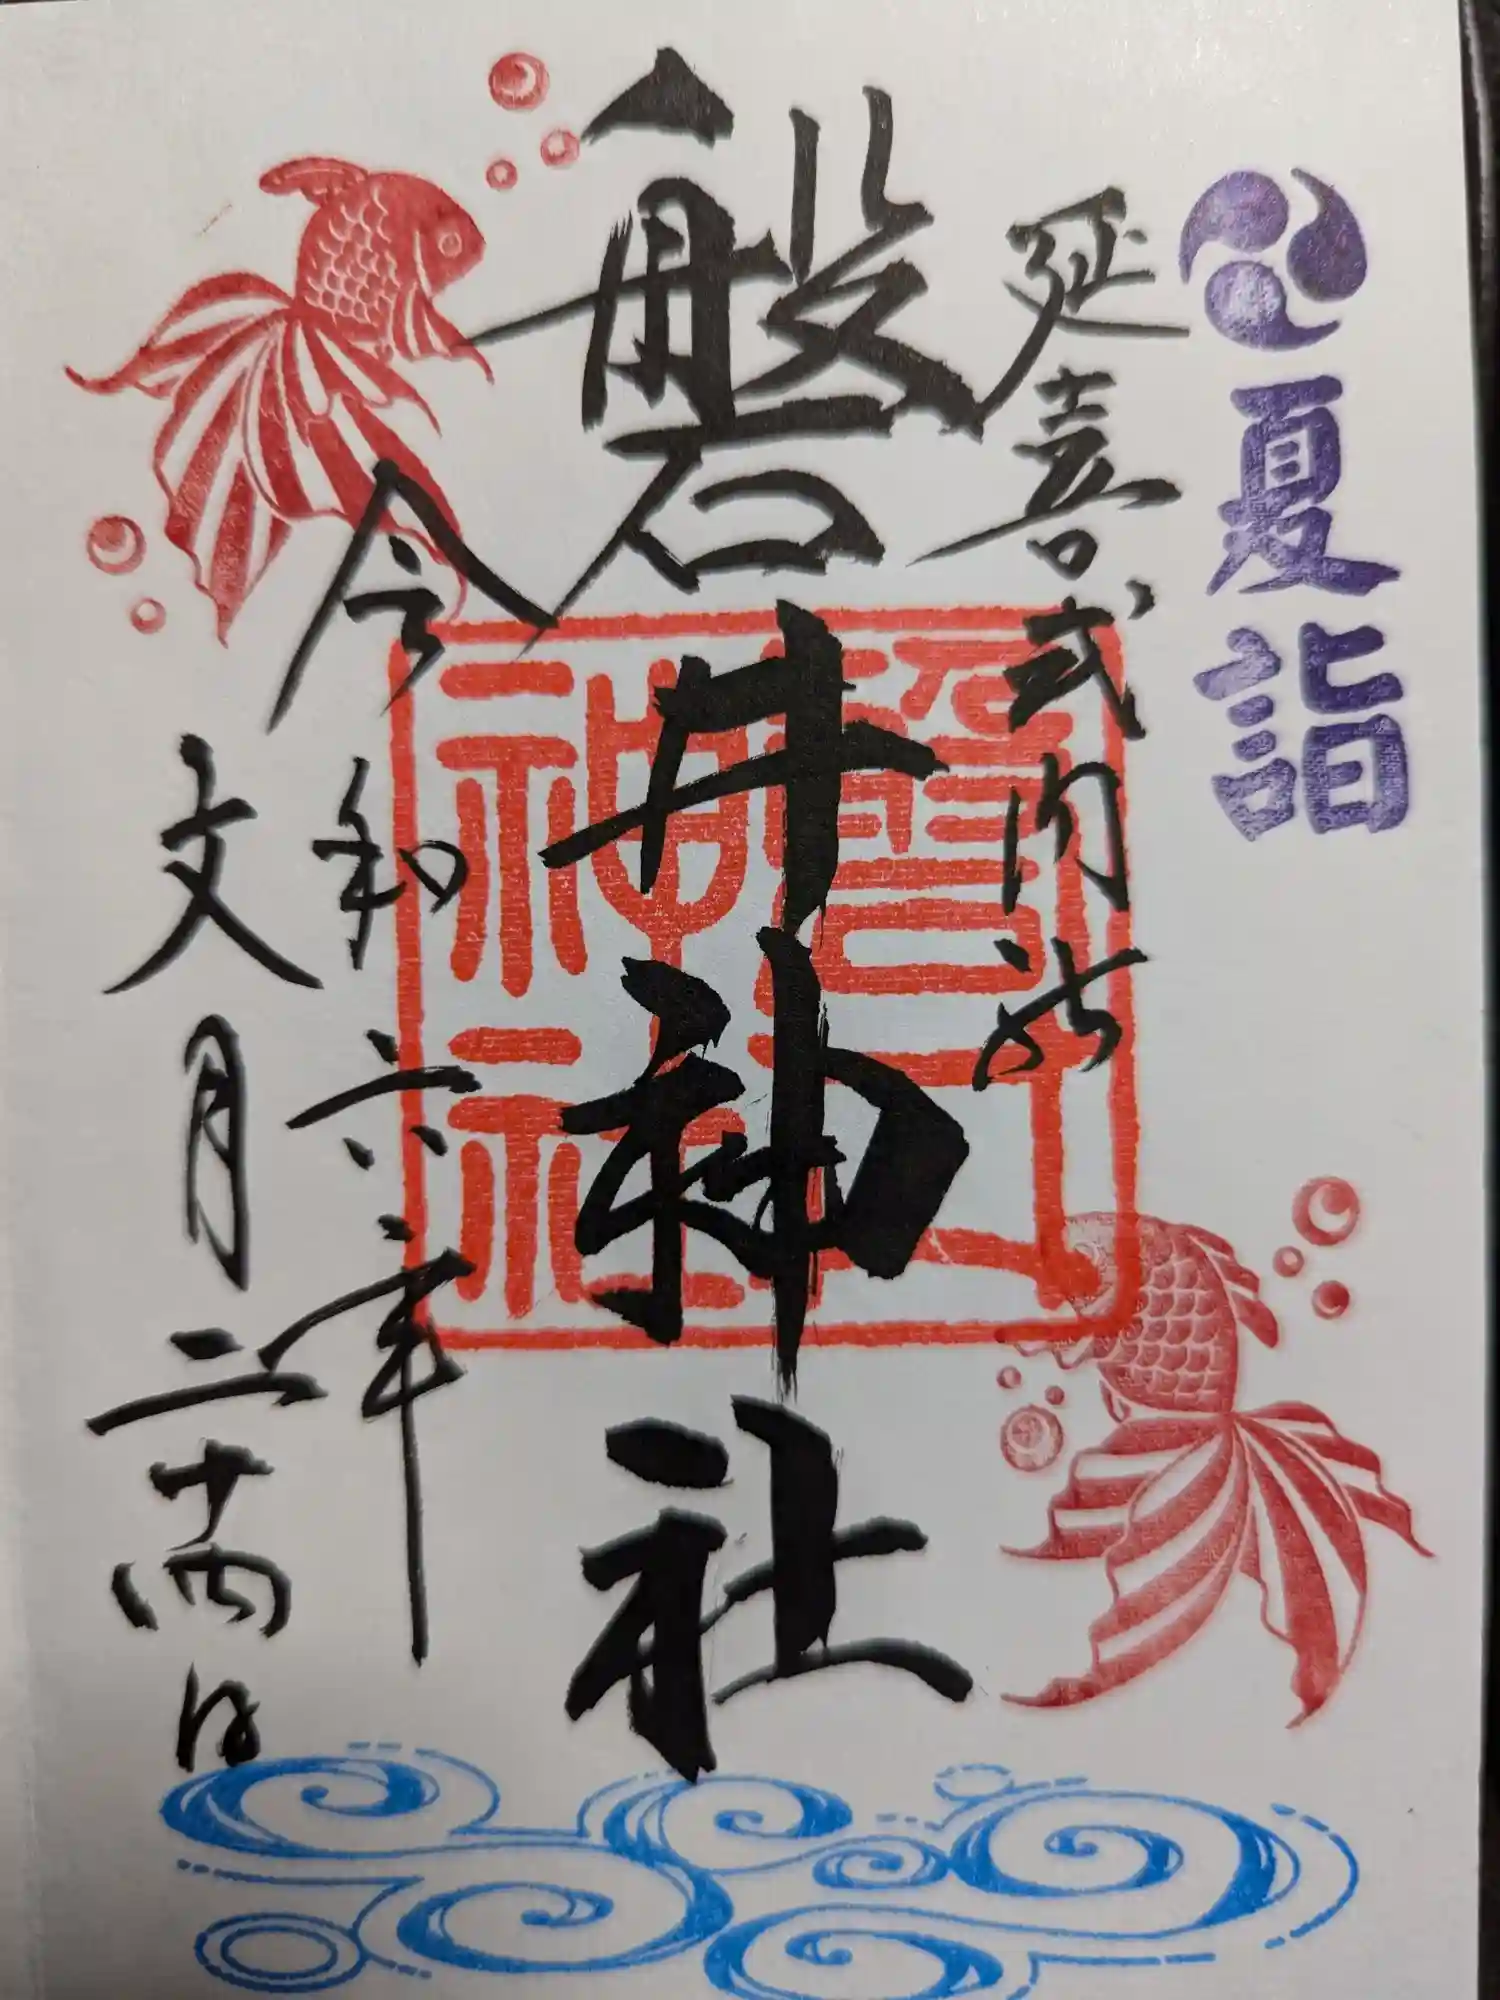 夏詣
延喜式内社
磐井神社
令和六年
文月二十四日
神社